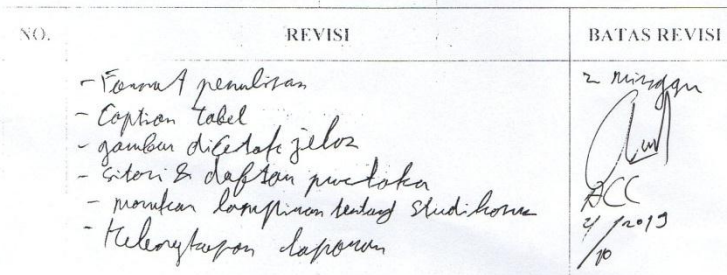 NO. REVISI BATAS REVISI
- Format penulisan 2 minggu
- Caption tabel
- gambar dicetak jelas
- sitasi & daftar pustaka
- masukan lampiran tentang studi kasus ACC
- Kelengkapan laporan /10 2019